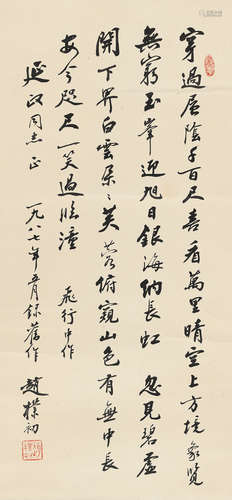 穿過層陰千百尺喜看萬里晴空上方境象覽
無窮玉峯迎旭日銀海納長虹 忽見碧虛
開下界白雲朵〻芙蓉俯窺山色有無中長
安今咫尺一笑過臨潼 飛行中作
延政同志正 一九八七年五月録舊作 趙樸初